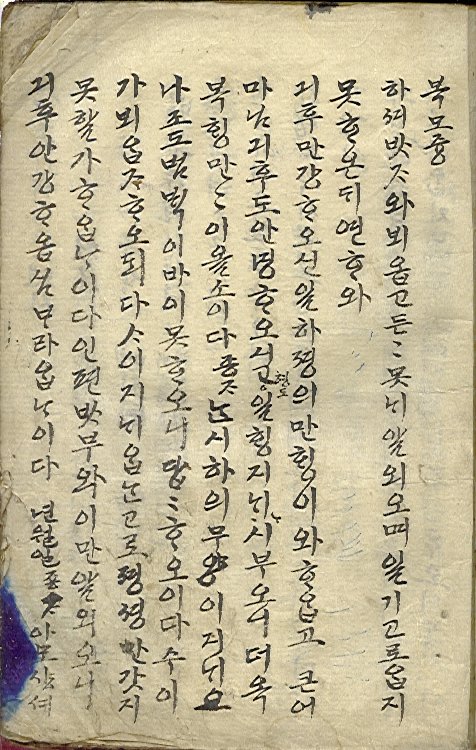 복모즁
하셔 밧ᄌᆞ와 뵈옵고 든든 못ᄂᆡ 알외오며 일긔 고로옵지
못ᄒᆞ온ᄃᆡ 연ᄒᆞ와
긔후 만강ᄒᆞ오신 일 하졍의 만ᄒᆡᆼ이와 ᄒᆞ옵고 큰어
마님 긔후도 안녕ᄒᆞ오신 일 ᄒᆡᆼ지 부오니 더옥
복ᄒᆡᆼ 만만이올소이다 죵ᄌᆞᄂᆞᆫ 시하의 무양이 지ᄂᆡ오
나 조도 범ᄇᆡᆨ이 바이 못ᄒᆞ오니 답답ᄒᆞ오이다 수이
가 뵈옵ᄌᆞ ᄒᆞ오되 다ᄉᆞ이 지ᄂᆡ옵ᄂᆞᆫ고로 만 갓지
못ᄒᆞᆯ가 ᄒᆞ옵ᄂᆞ이다 인편 밧부와 이만 알외오니
긔후 안강ᄒᆞ옴 ᄇᆞ라옵ᄂᆞ이다 년 월 일